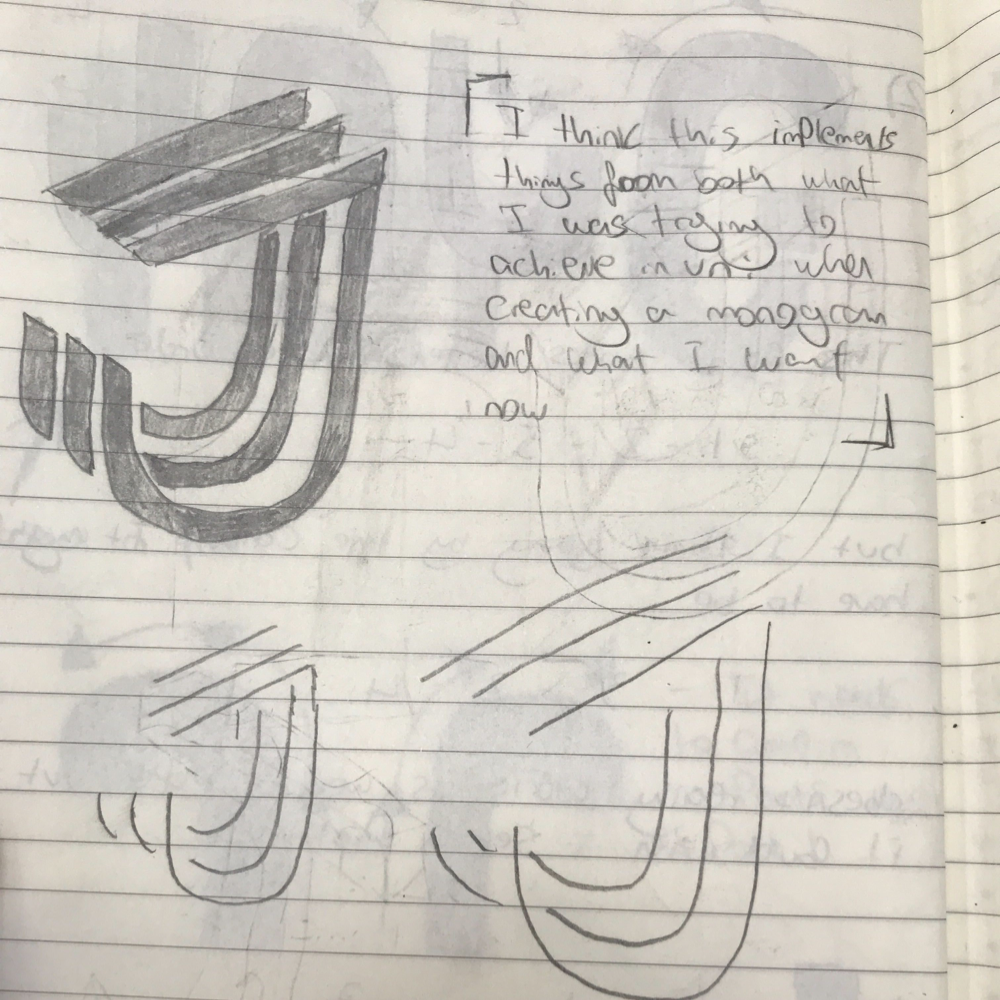 I think this implements
things from both what
I was trying to
achieve in uni when
creating a monogram
and what I want
now